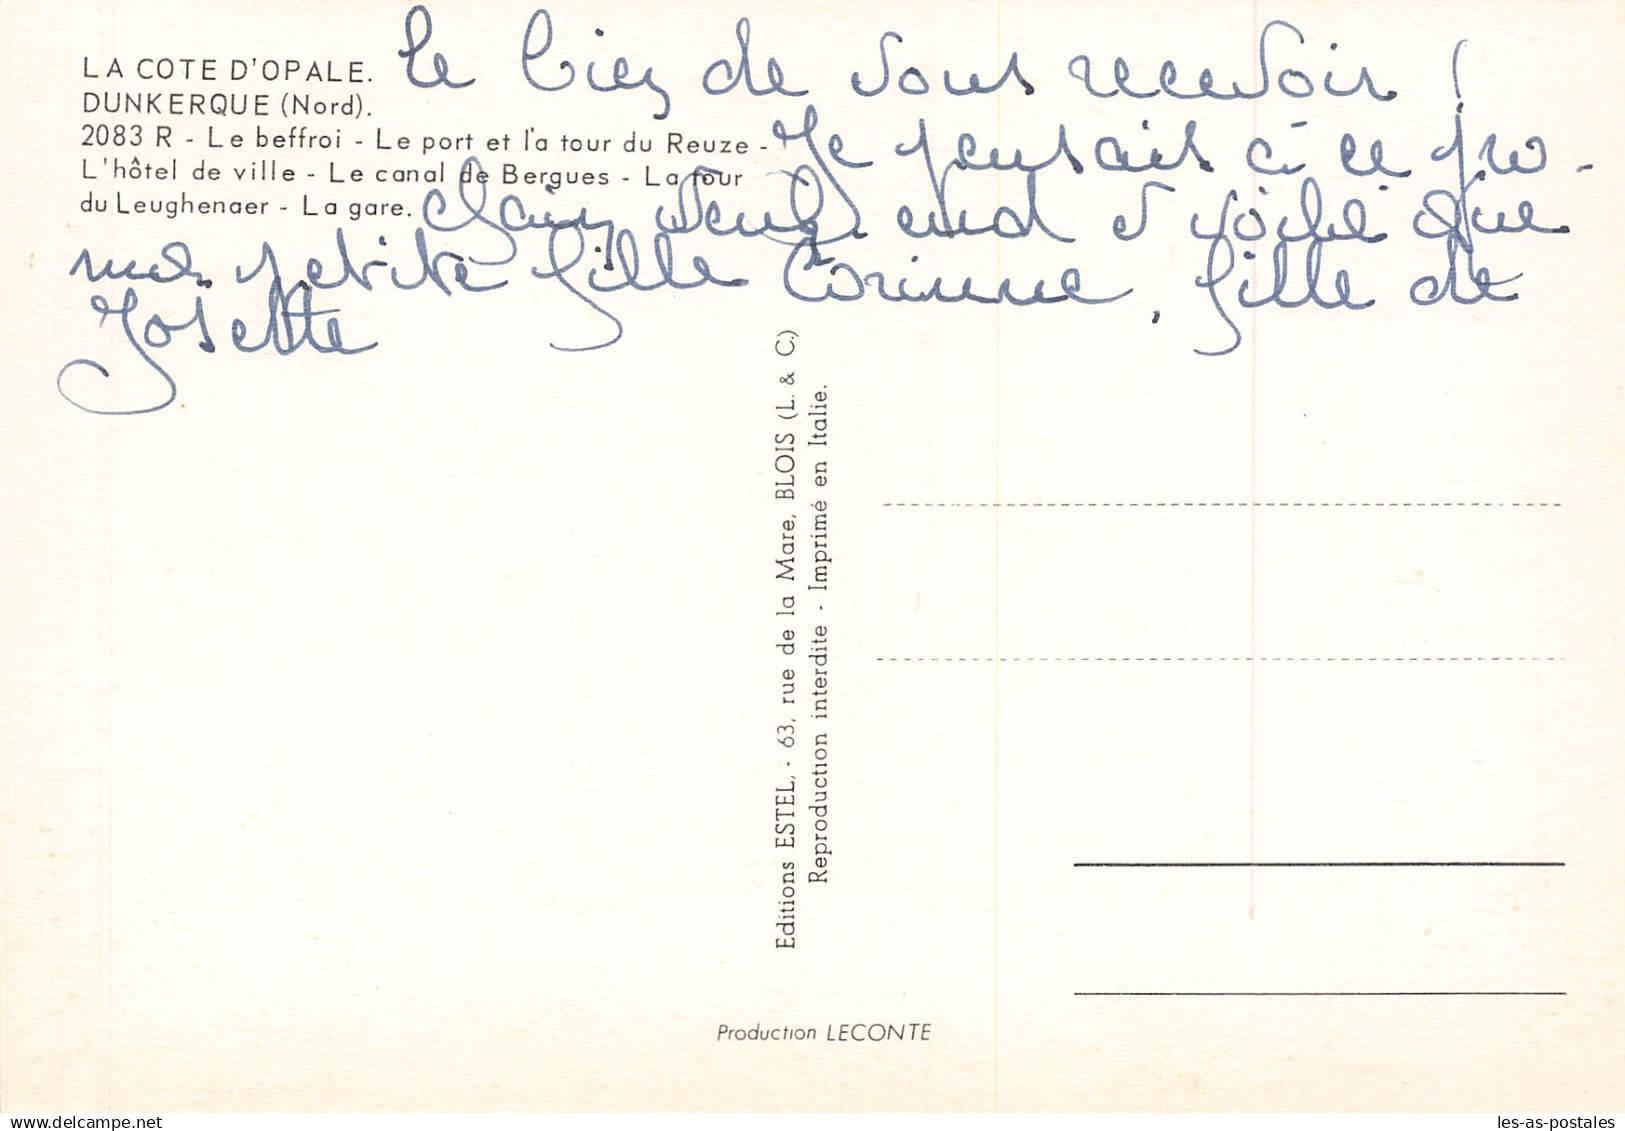 LA COTE D'OPALE.
DUNKERQUE (Nord).
2083 R - Le beffroi - Le port et la tour du Reuze -
L'hôtel de ville - Le canal de Bergues - La tour
du Leughenaer - La gare.
le lieu de vous recevoir !
Je pensais à ce pro-
chain week end et voilà que
ma petite fille Corinne, fille de
Josette
Editions ESTEL, - 63, rue de la Mare, BLOIS (L. & C.)
Reproduction interdite - Imprimé en Italie.
Production LECONTE
delcampe.net
les-as-postales